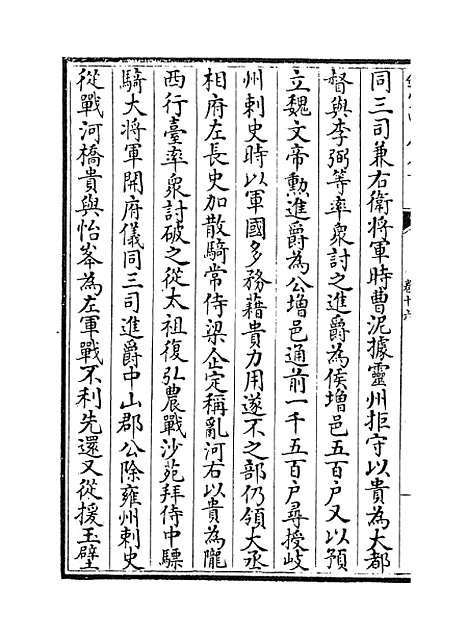 卷十六
同三司兼右衛將軍時曹泥據靈州拒守以貴為大都
督與李弼等率衆討之進爵為侯增邑五百戶又以預
立魏文帝勲進爵為公增邑通前一千五百戶尋授岐
州刺史時以軍國多務藉貴力用遂不之部仍領大丞
相府左長史加散騎常侍梁企定稱亂河右以貴為隴
西行臺率衆討破之從太祖復弘農戰沙苑拜侍中驃
騎大将軍開府儀同三司進爵中山郡公除雍州刺史
從戰河橋貴與怡峯為左軍戰不利先還又從援玉壁